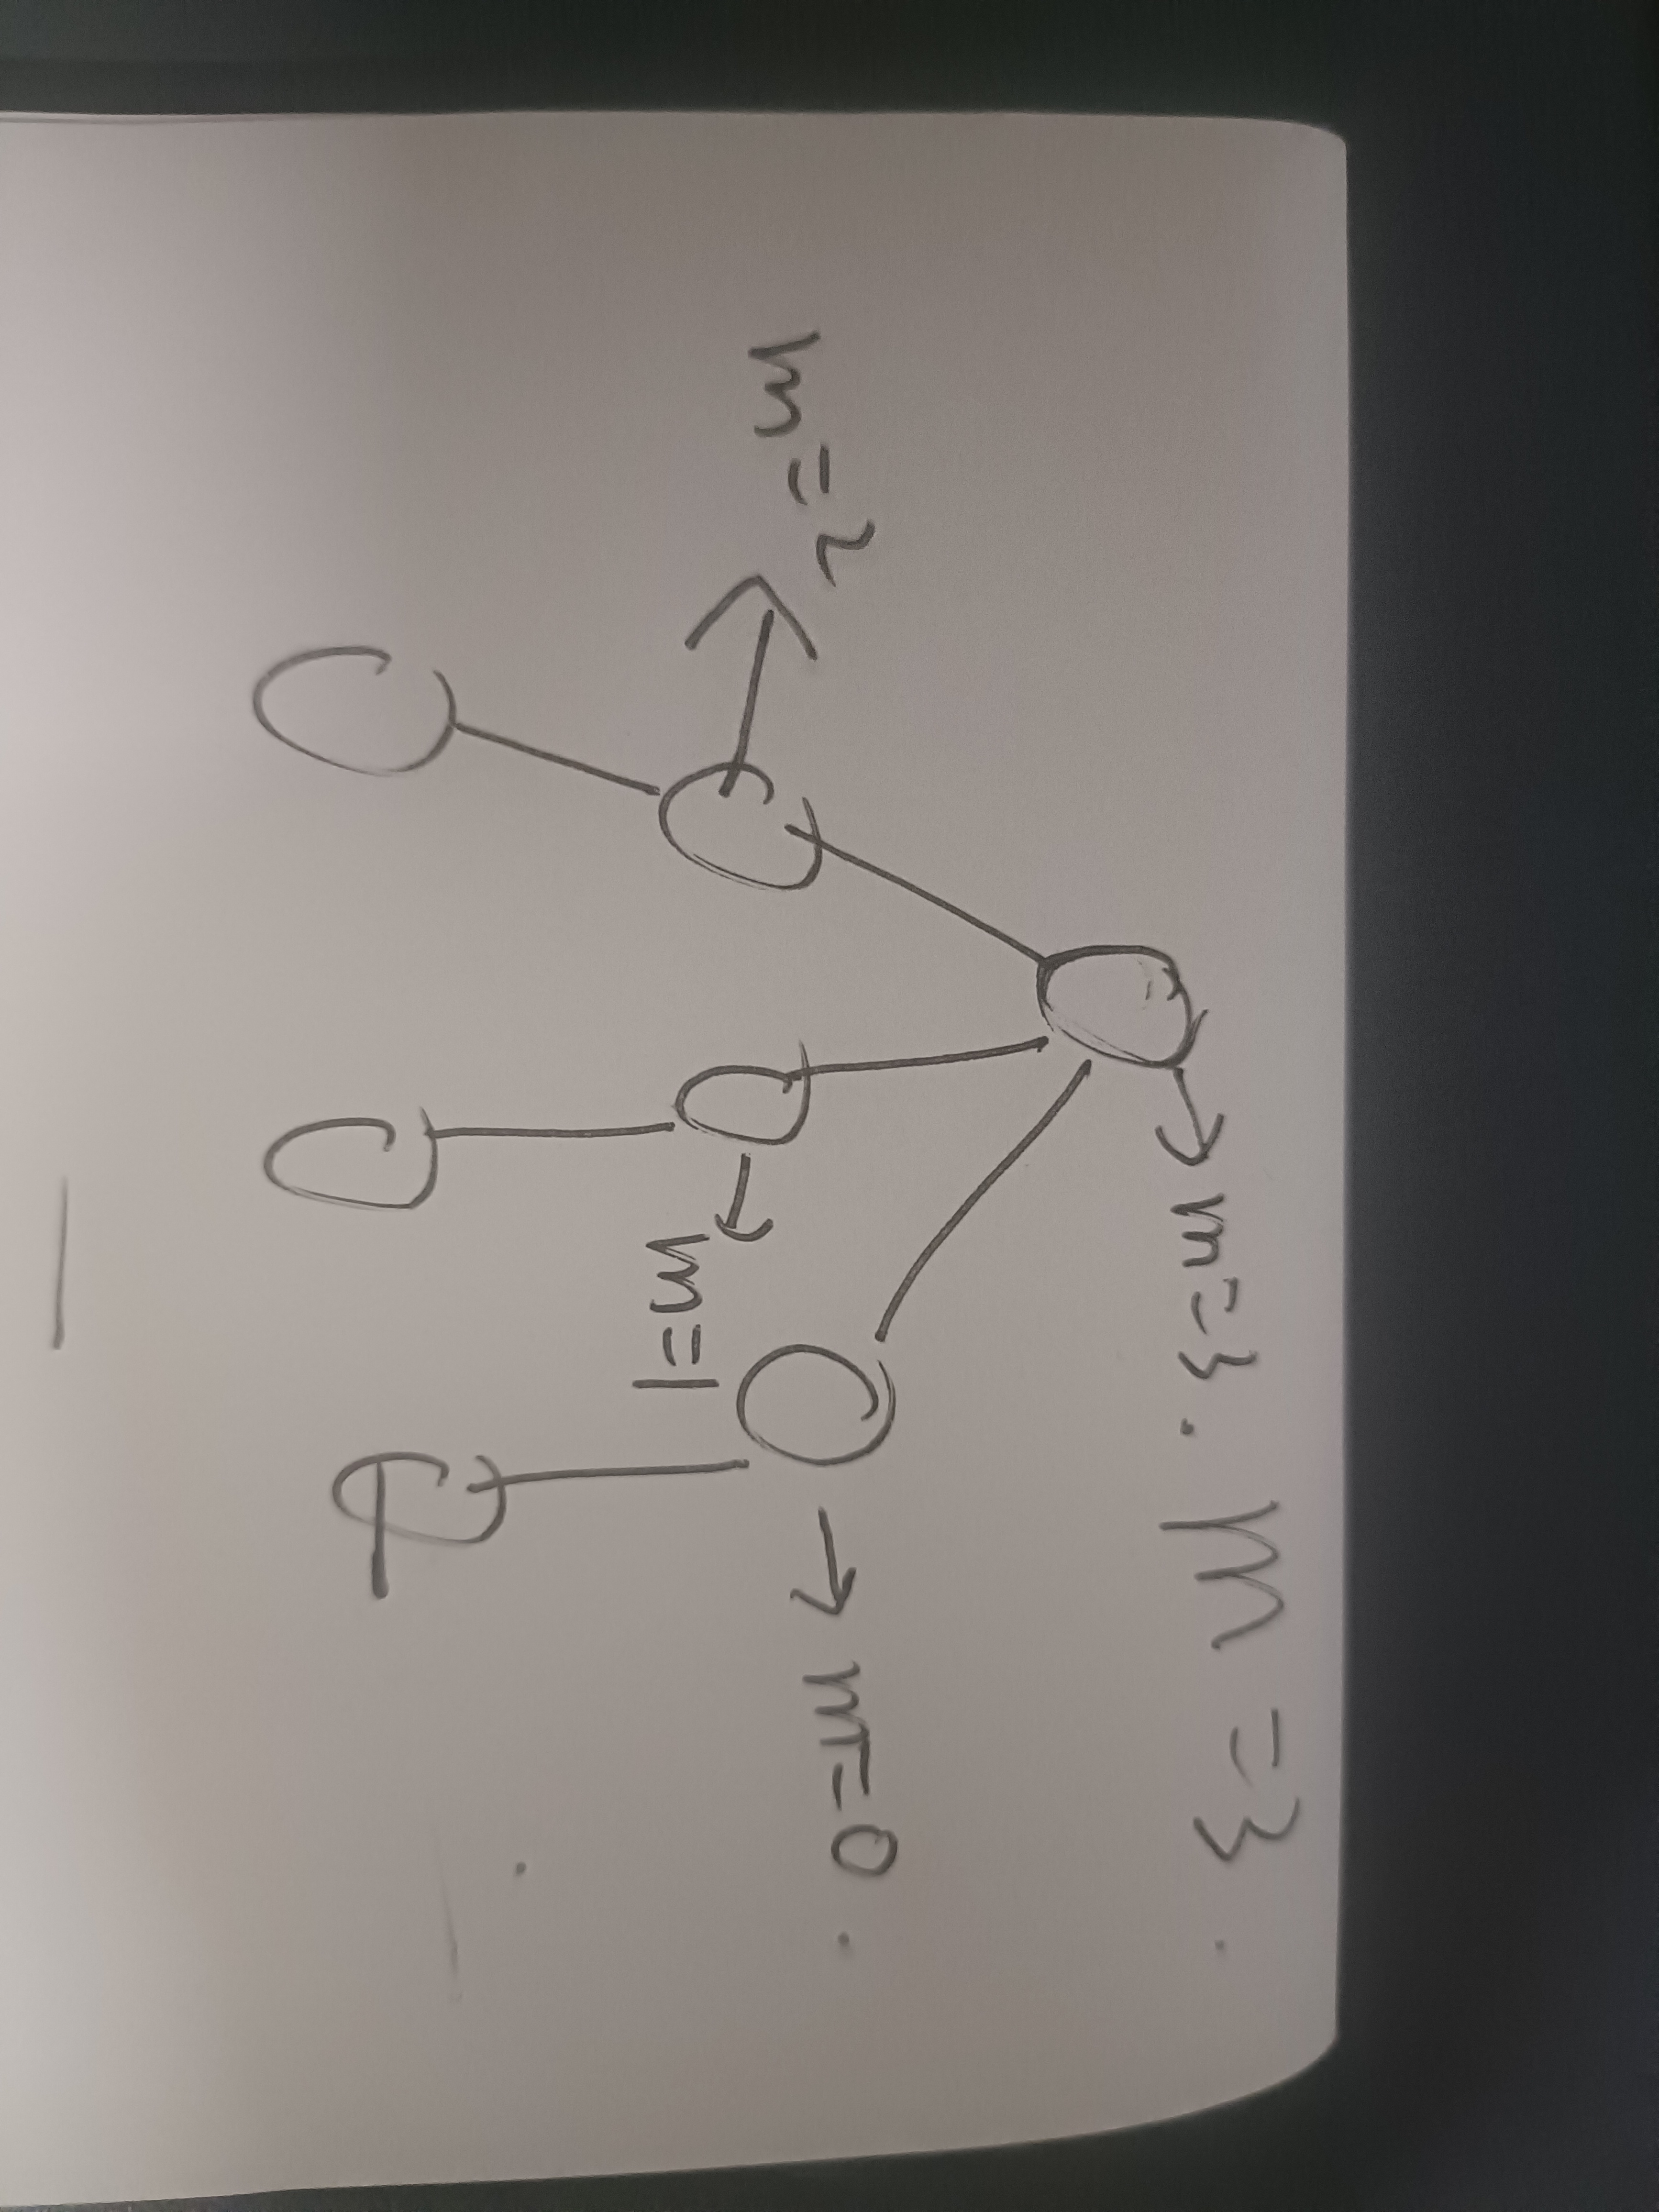 m=3. M=3.
m=2
m=1
m=0.